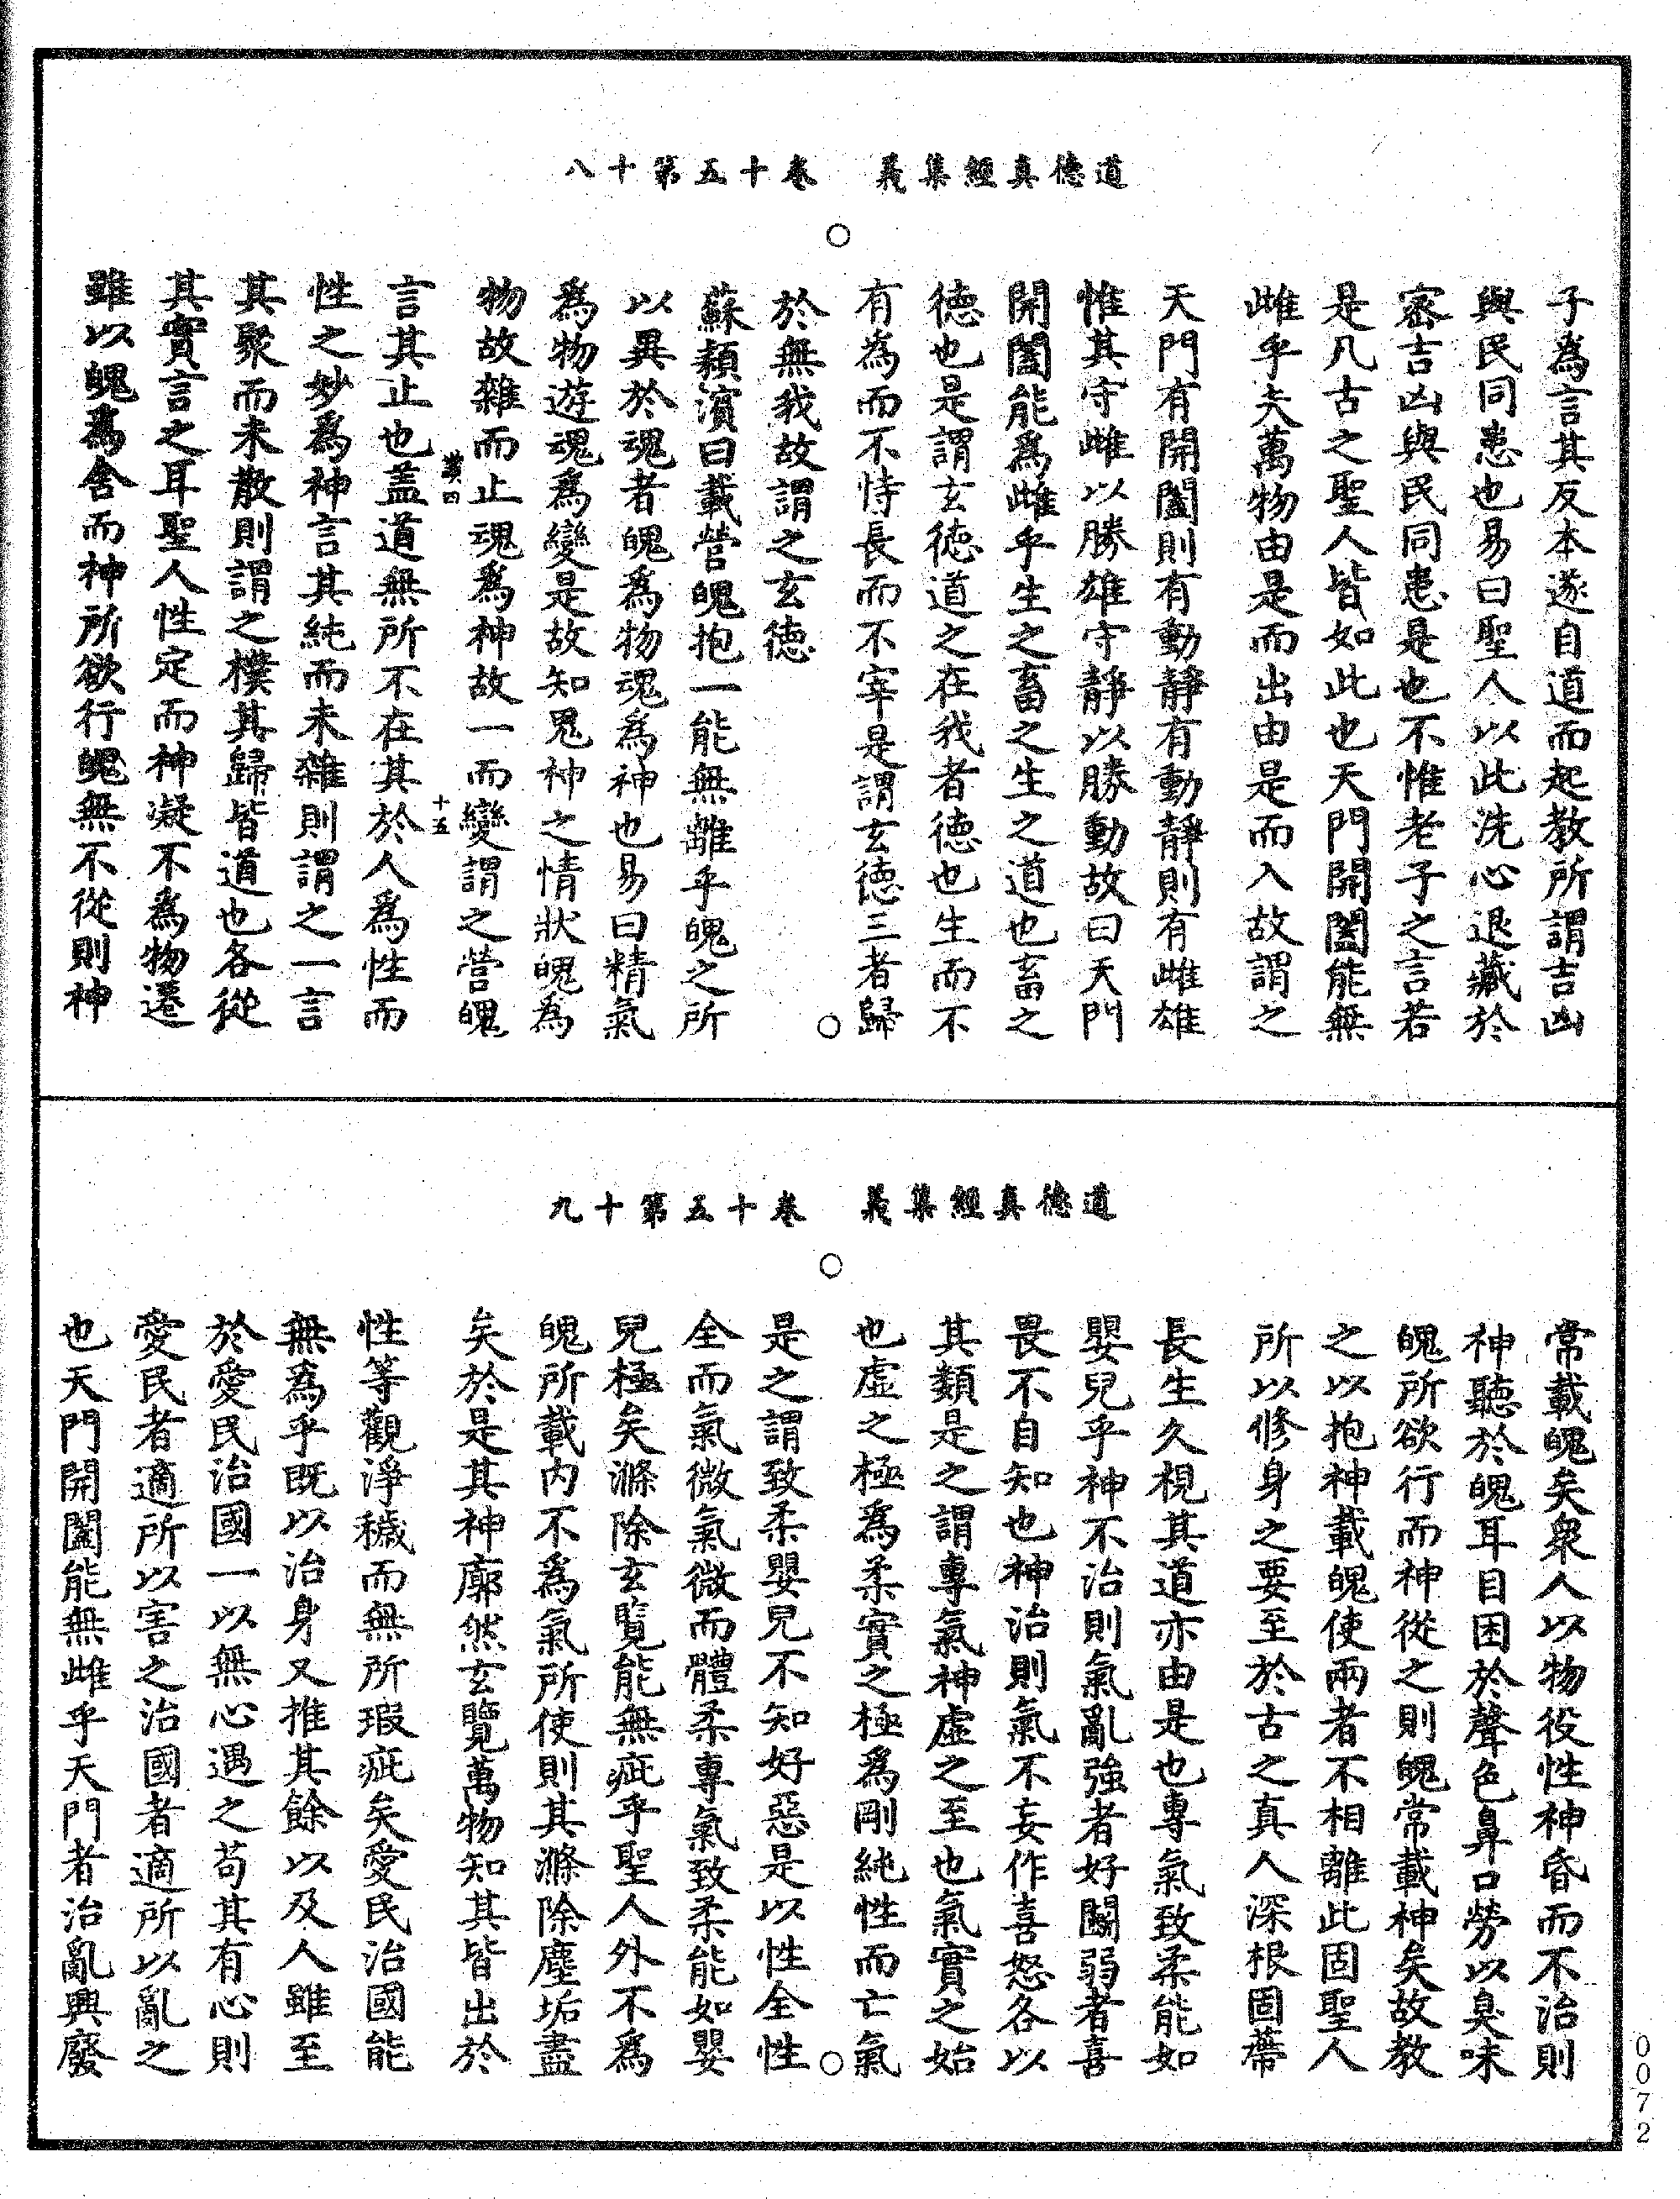 道德真經集義　卷十五第十八
子為言其反本遂自道而起教所謂吉凶
與民同患也易曰聖人以此洗心退藏於
密吉凶與民同患是也不惟老子之言若
是凡古之聖人皆如此也天門開闔能無
雌乎夫萬物由是而出由是而入故謂之
天門有開闔則有動靜有動靜則有雌雄
惟其守雌以勝雄守靜以勝動故曰天門
開闔能為雌乎生之畜之生之道也畜之
德也是謂玄德道之在我者德也生而不
有為而不恃長而不宰是謂玄德三者歸
於無我故謂之玄德
蘇潁濱曰載營魄抱一能無離乎魄之所
以異於魂者魄為物魂為神也易曰精氣
為物遊魂為變是故知鬼神之情狀魄為
物故雜而止魂為神故一而變謂之營魄
十五
言其止也蓋道無所不在其於人為性而
性之妙為神言其純而未雜則謂之一言
其聚而未散則謂之樸其歸皆道也各從
其實言之耳聖人性定而神凝不為物遷
雖以魄為舍而神所欲行魄無不從則神
道德真經集義　卷十五第十九
常載魄矣衆人以物役性神昏而不治則
神聽於魄耳目困於聲色鼻口勞以臭味
魄所欲行而神從之則魄常載神矣故教
之以抱神載魄使兩者不相離此固聖人
所以修身之要至於古之真人深根固蔕
長生久視其道亦由是也專氣致柔能如
嬰兒乎神不治則氣亂強者好鬭弱者喜
畏不自知也神治則氣不妄作喜怒各以
其類是之謂專氣神虛之至也氣實之始
也虛之極為柔實之極為剛純性而亡氣
是之謂致柔嬰兒不知好惡是以性全性
全而氣微氣微而體柔專氣致柔能如嬰
兒極矣滌除玄覽能無疵乎聖人外不為
魄所載內不為氣所使則其滌除塵垢盡
矣於是其神廓然玄覽萬物知其皆出於
性等觀淨穢而無所瑕疵矣愛民治國能
無為乎既以治身又推其餘以及人雖至
於愛民治國一以無心遇之苟其有心則
愛民者適所以害之治國者適所以亂之
也天門開闔能無雌乎天門者治亂興廢
0072